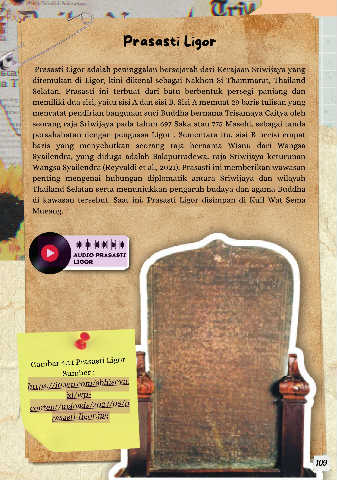 Prasasti Ligor
Prasasti Ligor adalah peninggalan bersejarah dari Kerajaan Sriwijaya yang
ditemukan di Ligor, kini dikenal sebagai Nakhon Si Thammarat, Thailand
Selatan. Prasasti ini terbuat dari batu berbentuk persegi panjang dan
memiliki dua sisi, yaitu sisi A dan sisi B. Sisi A memuat 29 baris tulisan yang
mencatat pendirian bangunan suci Buddha bernama Trisamaya Caitya oleh
seorang raja Sriwijaya pada tahun 697 Saka atau 775 Masehi, sebagai tanda
persahabatan dengan penguasa Ligor. Sementara itu, sisi B berisi empat
baris yang menyebutkan seorang raja bernama Wisnu dari Wangsa
Syailendra, yang diduga adalah Balaputradewa, raja Sriwijaya keturunan
Wangsa Syailendra (Reyvaldi et al., 2021). Prasasti ini memberikan wawasan
penting mengenai hubungan diplomatik antara Sriwijaya dan wilayah
Thailand Selatan serta menunjukkan pengaruh budaya dan agama Buddha
di kawasan tersebut. Saat ini, Prasasti Ligor disimpan di Kuil Wat Sema
Mueang.
AUDIO PRASASTI
LIGOR
Gambar 4.21 Prasasti Ligor
Sumber :
109